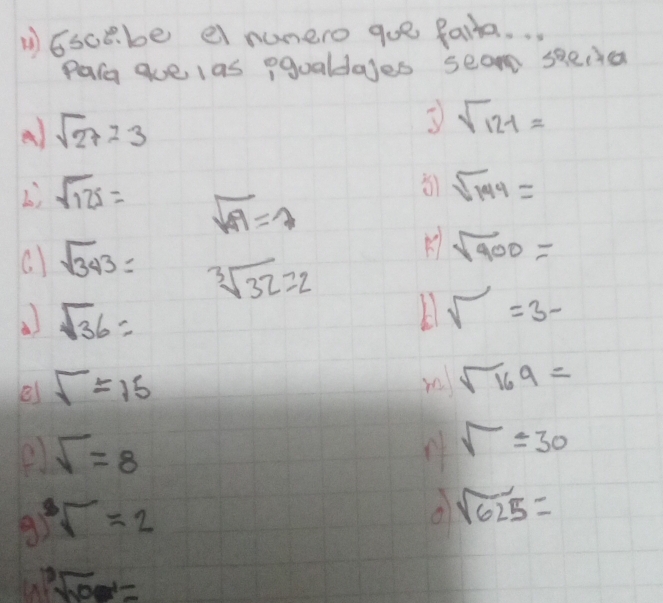 Escribe el numero que falta...
Para que las igualdades sean
a) √27 = 3
b) √125 =
c) √343 =
d) √36 =
e) √ = 15
f) √ = 8
g) √ = 2
√49 = 7
³√32 = 2
√121 =
√144 =
k) √900 =
√ = 3-
m) √169 =
√ = 30
o) √625 =